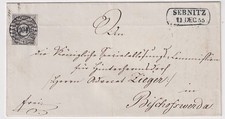 SEBNITZ
11 DEC 55
An
die Königliche Specialablösungs Commission
für Hinterhermsdorf
Herrn Advocat Zieger
in
frei
Bischofswerda